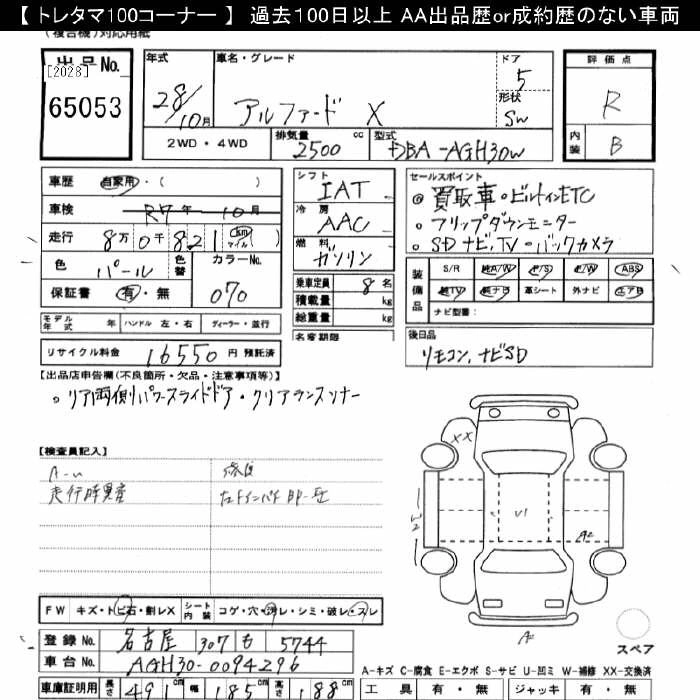 【 トレタマ100コーナー 】 過去100日以上 AA出品歴or成約歴のない車両
(複合機)対応用紙
出品No.
[2028]
65053
年式
28/10月
車名・グレード
アルファード X
ドア
5
形状
SW
評価点
R
内装
B
2WD・4WD
排気量
2500 cc
型式
DBA-AGH30W
車歴 自家用・( )
車検 R7年 10月
走行 8万0千821 (km マイル)
色 パール
色替
カラーNo.
070
保証書 有・無
シフト
IAT
冷房
AAC
燃料
ガソリン
乗車定員 8 名
積載量 kg
総重量 kg
名変期限
セールスポイント
◎ 買取車・ビルトインETC
○ フリップダウンモニター
○ SDナビ,TV・バックカメラ
装備品
S/R 純A/W P/S P/W ABS
純TV 純ナビ 革シート 外ナビ エアB
ナビ型番:
モデル年式 年 ハンドル 左・右 ディーラー・並行
リサイクル料金 16550 円 預託済
後日品
リモコン,ナビSD
【出品店申告欄(不良箇所・欠品・注意事項等)】
○ リア両側パワースライドドア・クリアランスソナー
【検査員記入】
修復
XX
W2
V1
A2
A2
FW キズ・トビ石・割レX
シート内装 コゲ・穴・汚レ・シミ・破レ・スレ
スペア
登録No. 名古屋 307 も 5744
車台No. AGH30-0094296
車庫証明用 長さ 491cm 幅 185cm 高さ 188cm
A-キズ C-腐食 E-エクボ S-サビ U-凹ミ W-補修 XX-交換済
工具 有・無 ジャッキ 有・無